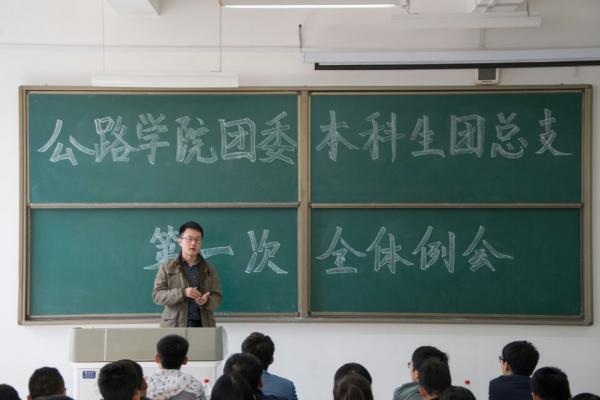 公路学院团委 本科生团总支
第一次 全体例会